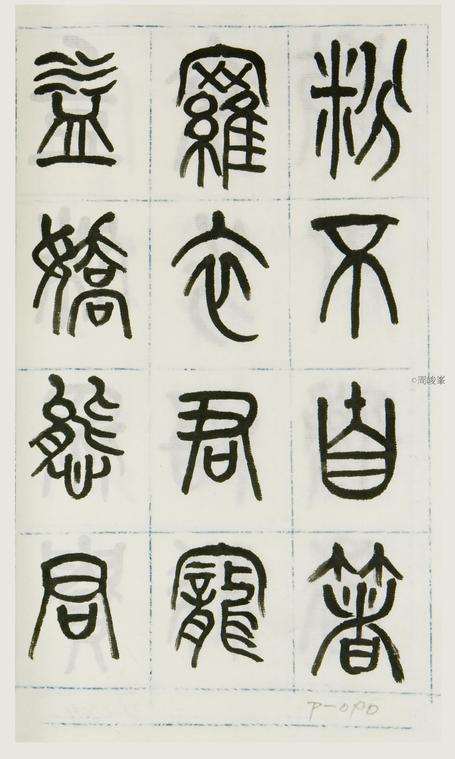 粉不自箸
羅衣君寵
益嬌態君
©周峻峯